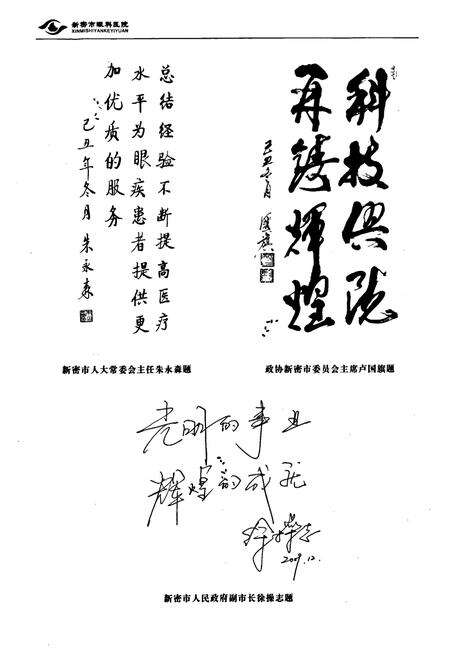 新密市眼科医院
XINMISHIYANKEYIYUAN
科技兴院
再铸辉煌
己丑冬月
总结经验不断提高医疗
水平为眼疾患者提供更
加优质的服务
己丑年冬月 朱永森
新密市人大常委会主任朱永森题
政协新密市委员会主席卢国旗题
光明的事业
辉煌的成就
徐操志
2009.12.
新密市人民政府副市长徐操志题